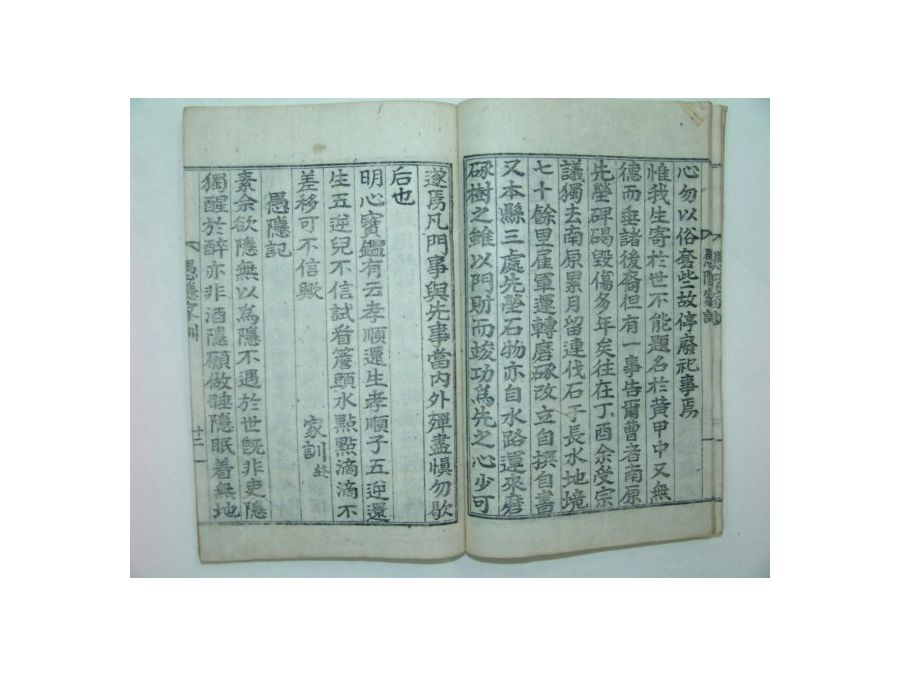 心勿以俗套些故停廢祀事焉
惟我生寄於世不能題名於黃甲中又無
德而垂諸後裔但有一事告爾曹者南原
先塋碑碣毀傷多年矣往在丁酉余受宗
議獨去南原累月留連伐石于長水地境
七十餘里雇軍運轉磨琢改立自撰自書
又本縣三處先塋石物亦自水路運來磨
琢樹之雖以門財而竣功爲先之心少可
遂焉凡門事與先事當內外殫盡愼勿歇
后也
明心寶鑑有云孝順還生孝順子五逆還
生五逆兒不信試看簷頭水點點滴滴不
差移可不信歟
家訓終
愚隱記
素余欲隱無以爲隱不遇於世旣非吏隱
獨醒於醉亦非酒隱願做睡隱眠着無地
愚隱家訓
廿二